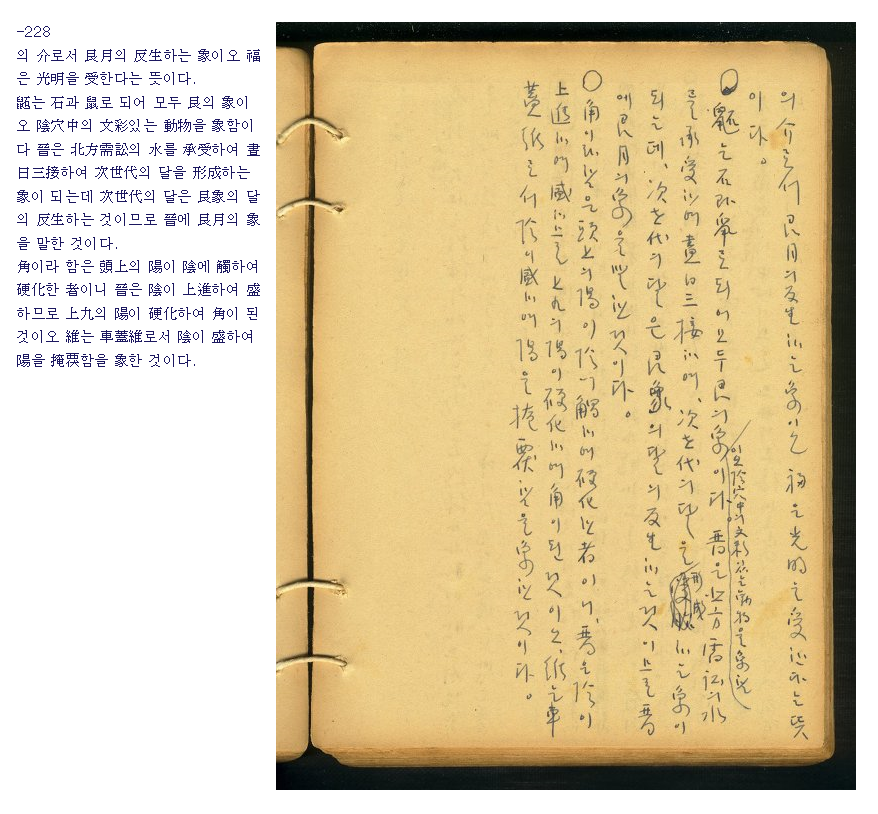 -228
의 介로서 艮月의 反生하는 象이오 福
은 光明을 受한다는 뜻이다.
鼫는 石과 鼠로 되어 모두 艮의 象이
오 陰穴中의 文彩있는 動物을 象함이
다 晉은 北方需訟의 水를 承受하여 晝
日三接하여 次世代의 달을 形成하는
象이 되는데 次世代의 달은 艮象의 달
의 反生하는 것이므로 晉에 艮月의 象
을 말한 것이다.
角이라 함은 頭上의 陽이 陰에 觸하여
硬化한 者이니 晉은 陰이 上進하여 盛
하므로 上九의 陽이 硬化하여 角이 된
것이오 維는 車蓋維로서 陰이 盛하여
陽을 掩覆함을 象한 것이다.
의 介로서 艮月의 反生하는 象이오 福은 光明을 受한다는 뜻
이다.
○ 鼫는 石과 鼠로 되어 모두 艮의 象이다. 晉은 北方需訟의 水
이오 陰穴中의 文彩있는 動物을 象함
를 承受하여 晝日三接하여, 次世代의 달을 形成하는 象이
되는데, 次世代의 달은 艮象의 달의 反生하는 것이므로 晉
에 艮月의 象을 말한 것이다.
○ 角이라 함은 頭上의 陽이 陰에 觸하여 硬化한 者이니, 晉은 陰이
上進하여 盛하므로 上九의 陽이 硬化하여 角이 된 것이오, 維는 車
蓋維로서 陰이 盛하여 陽을 掩覆함을 象한 것이다.